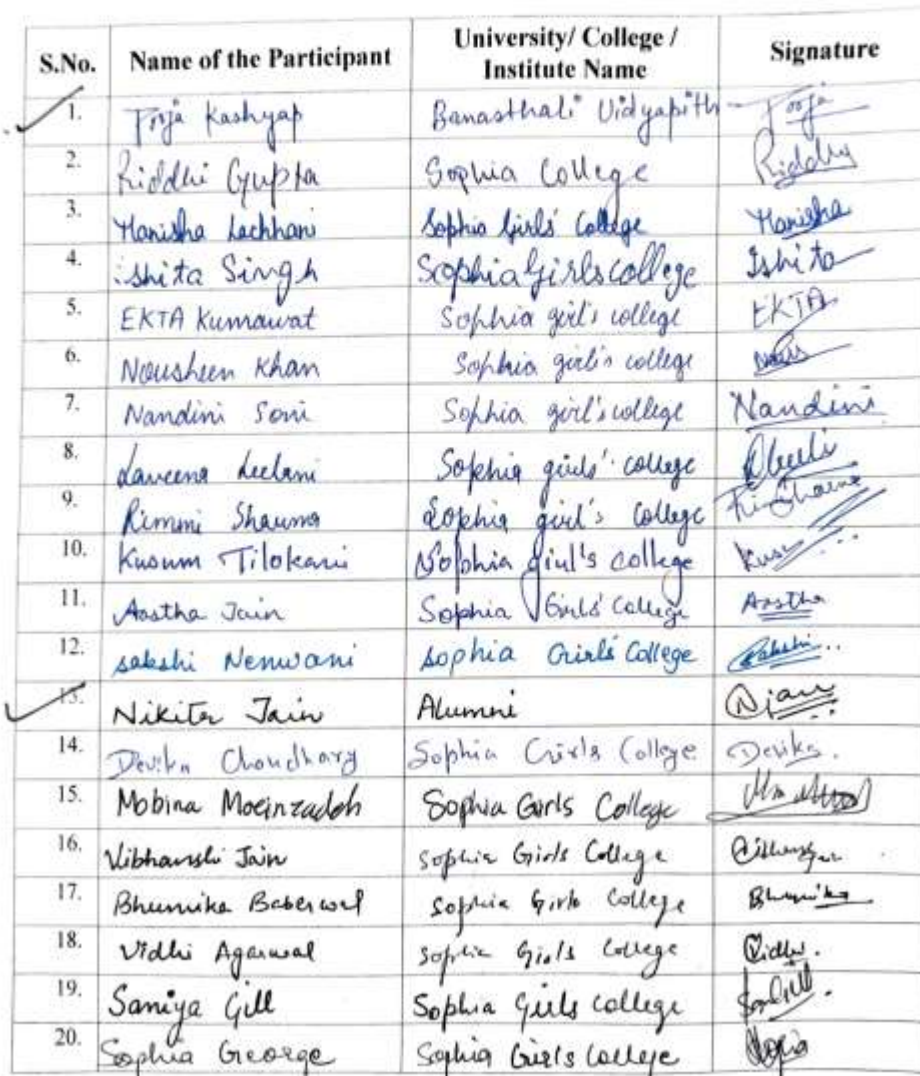 S.No. Name of the Participant University/ College / Institute Name Signature
1. Pooja Kashyap Banasthali Vidyapith Pooja
2. Riddhi Gupta Sophia College Riddhi
3. Manisha Lachhani Sophia Girls' College Manisha
4. Ishita Singh Sophia Girls College Ishita
5. EKTA Kumawat Sophia girl's college EKTA
6. Nousheen Khan Sophia girl's college
7. Nandini Soni Sophia girl's college Nandini
8. Laveena Leelani Sophia girls' college
9. Rimmi Sharma Sophia girl's College
10. Kusum Tilokani Sophia girl's college Kusu
11. Aastha Jain Sophia Girls' College Aastha
12. sakshi Nenwani Sophia Girls' College Sakshi
13. Nikita Jain Alumni NJain
14. Devika Choudhary Sophia Girls College Devika.
15. Mobina Moeinzadeh Sophia Girls College
16. Vibhanshi Jain Sophia Girls College
17. Bhumika Baberwal Sophia Girls College Bhumika
18. Vidhi Agarwal Sophia Girls College Vidhi.
19. Saniya Gill Sophia Girls College
20. Sophia George Sophia Girls College Sophia